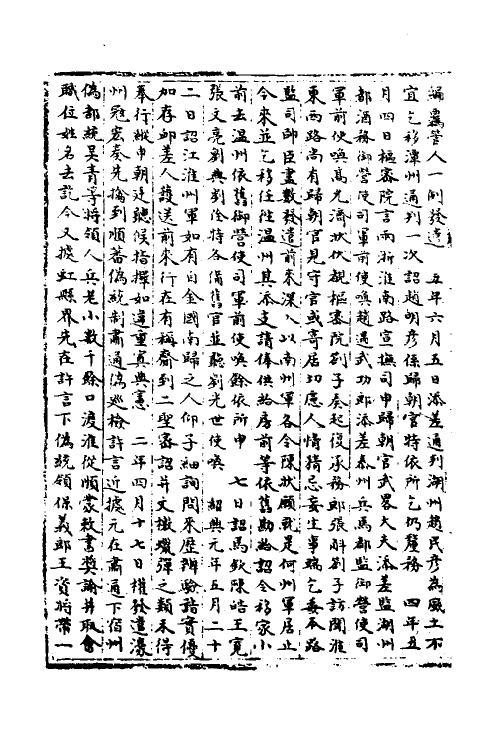 編置管人一例發遣　五年六月五日添差通判湖州趙民彥為風土不
宜乞移潭州通判一次詔趙明彥係歸朝官特依所乞仍釐務　四年五
月四日樞密院言兩浙淮南路宣撫司申歸朝官武畧大夫添差監湖州
都酒務御營使司軍前使喚趙遇武功郎添差泰州兵馬都監御營使司
軍前使喚高允濟狀伏覩樞密院劄子奏起復承務郎張斛劄子訪聞淮
東西路尚有歸朝官見守官或寄居切慮人情猜忌妄生事端乞委本路
監司帥臣盡數發遣前來深入以南州軍各令陳狀願就是何州軍居止
今來並乞移任陞溫州其添支請俸供給房前等依舊勘給詔令移家小
前去溫州依舊御營使司軍前使喚餘依所申　七日詔馬欽陳皓王寬
張文亮劉興劉淦特各倩舊官並聽劉光世使喚　紹興元年五月二十
二日詔江淮州軍如有自金國南歸之人仰子細詢問來歷辨驗詣實優
加存卹差人護送前來行在有稱齎到二聖密詔并文檄蠟彈之類未得
奉行繳申朝廷聽候指揮如違重寘典憲　二年四月十七日權發遣濠
州寇宏奏先掄到順蕃偽統制肅通偽巡檢許言近據元在肅通下宿州
偽都統吳青等將領人兵老小數千餘口渡淮從順蒙敕書獎諭并取會
職位姓名去訖今又據虹縣界先在許言下偽統領係義郎王資將帶一